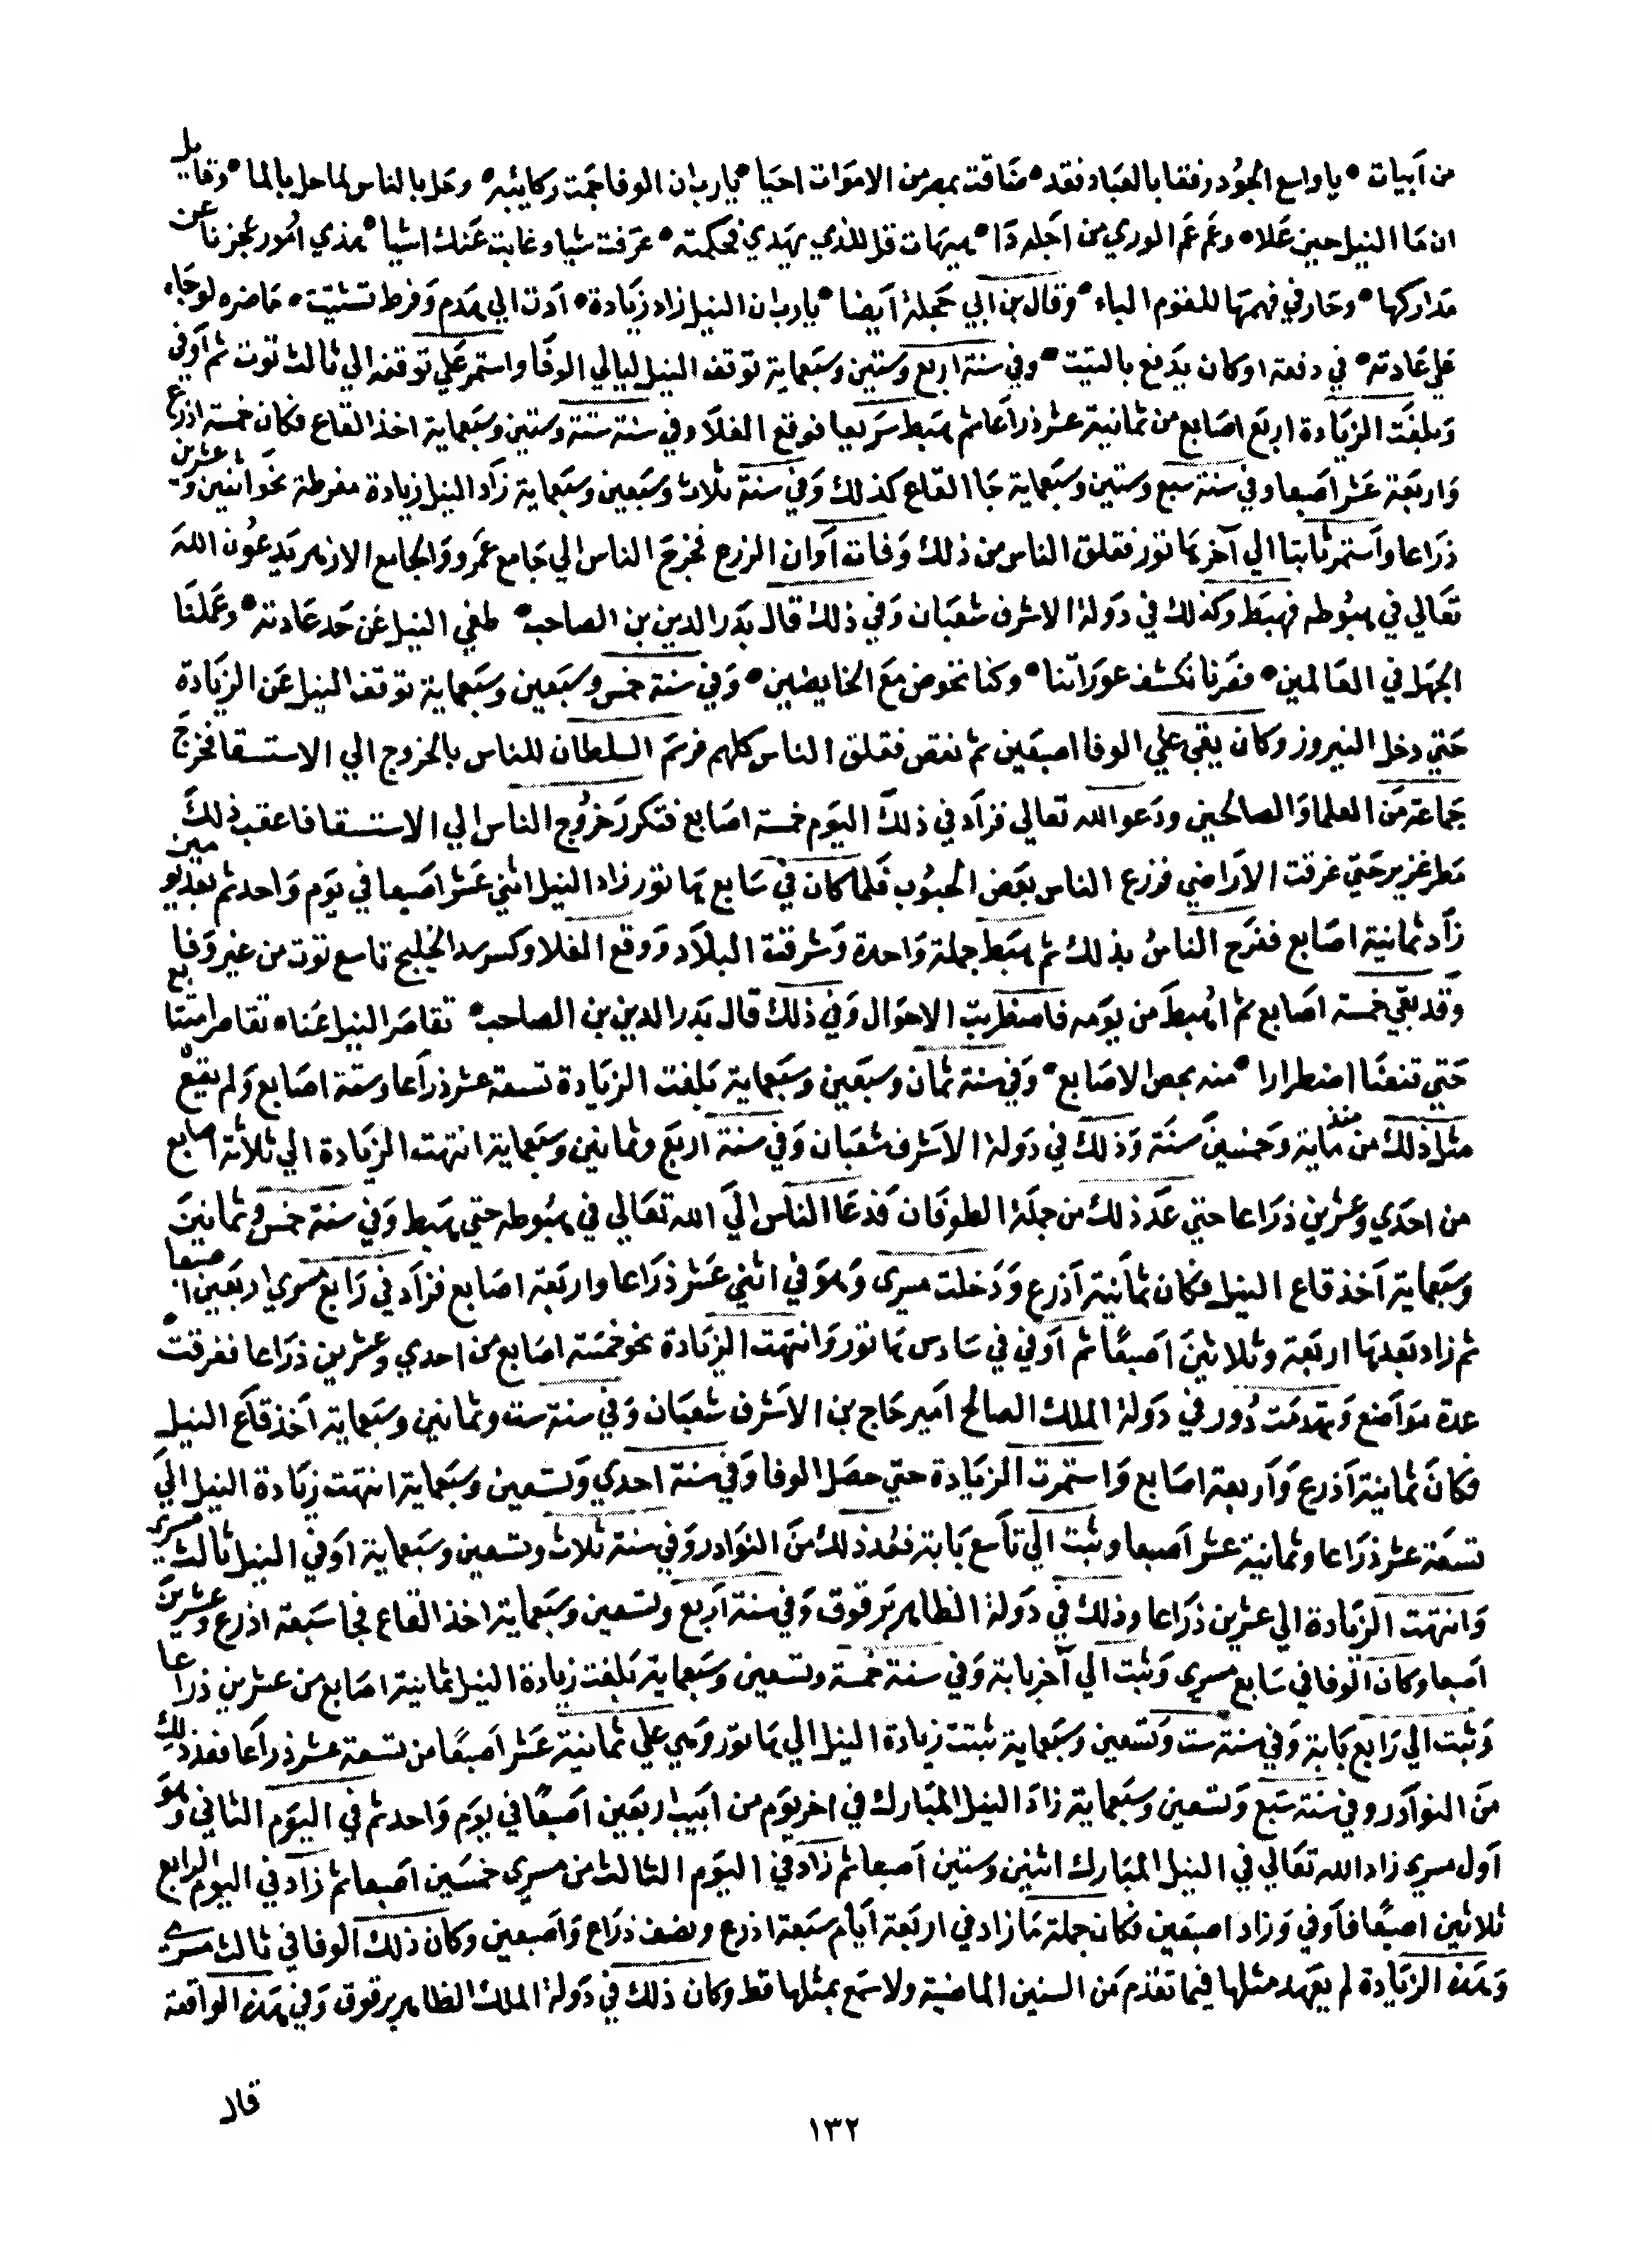 من أبيات • يا واسع الجود رفقا بالعباد فقد • ضاقت بمصر من الاموات احيا • يا رب ان الوفا جمت ركايبه • وحل بالناس لما حل بالما • وقايل
ان ما النيل حين علا • وعم عم الوري من اجله دا • هيهات قل للذي يهدي بحكمته • عرفت شيا وغابت عنك اشيا • هذي امور عجزنا عن
مداركها • وحار في فهمها للقوم الباء • وقال بن ابي حجلة أيضا • يا رب ان النيل زاد زيادة • ادت الي هدم وفرط تشتيت • ما ضره لو جاء
علي عادته • في دفعه او كان يدفع بالتيت • وفي سنة اربع وستين وسبعماية توقف النيل ليالي الوفا واستمر علي توقفه الي ثالث توت ثم أوفي
وبلغت الزيادة اربع اصابع من ثمانية عشر ذراعا ثم هبط سريعا فوقع الغلاء وفي سنة ستة وستين وسبعماية اخذ القاع فكان خمسة اذرع
واربعة عشر اصبعا وفي سنة سبع وستين وسبعماية جا القاع كذلك وفي سنة ثلاث وسبعين وسبعماية زاد النيل زيادة مفرطة نحو اثنين وعشرين
ذراعا واستمر ثابتا الي آخر هاتور فقلق الناس من ذلك وفات أوان الزرع فخرج الناس الي جامع عمرو والجامع الازهر يدعون الله
تعالي في هبوطه فهبط وكذلك في دولة الاشرف شعبان وفي ذلك قال بدر الدين بن الصاحب • طغي النيل عن حد عادته • وعملنا
الجهل في العالمين • فقرنا نكشف عوراتنا • وكنا نخوض مع الخايضين • وفي سنة خمس وسبعين وسبعماية توقف النيل عن الزيادة
حتي دخل النيروز وكان بقي علي الوفا اصبعين ثم نقص فقلق الناس كلهم فرسم السلطان للناس بالخروج الي الاستسقا فخرج
جماعة من العلما والصالحين ودعوا الله تعالي فزاد في ذلك اليوم خمسة اصابع فتكرر خروج الناس الي الاستسقا فاعقب ذلك
مطر غزير حتي غرقت الاراضي فزرع الناس بعض الحبوب فلما كان في سابع هاتور زاد النيل اثني عشر اصبعا في يوم واحد ثم بعد يومين
زاد ثمانية اصابع ففرح الناس بذلك ثم هبط جملة واحدة وشرقت البلاد ووقع الغلا وكسر سد الخليج تاسع توت من غير وفا
وقد بقي خمسة اصابع ثم انهبط من يومه فاضطربت الاحوال وفي ذلك قال بدر الدين بن الصاحب • تقاصر النيل عنا • تقاصرا متتابع
حتي قنعنا اضطرارا • منه بمص الاصابع • وفي سنة ثمان وسبعين وسبعماية بلغت الزيادة تسعة عشر ذراعا وستة اصابع ولم يقع
مثل ذلك من منذ ماية وخمسين سنة وذلك في دولة الاشرف شعبان وفي سنة اربع وثمانين وسبعماية انتهت الزيادة الي ثلاثة اصابع
من احدي وعشرين ذراعا حتي عد ذلك من جملة الطوفان فدعا الناس الي الله تعالي في هبوطه حتي هبط وفي سنة خمس وثمانين
وسبعماية أخذ قاع النيل فكان ثمانية أذرع ودخلت مسري وهو في اثني عشر ذراعا واربعة اصابع فزاد في رابع مسري اربعين اصبعا
ثم زاد بعدها اربعة وثلاثين اصبعا ثم أوفي في سادس هاتور وانتهت الزيادة نحو خمسة اصابع من احدي وعشرين ذراعا فغرقت
عدة مواضع وتهدمت دور في دولة الملك الصالح امير حاج بن الاشرف شعبان وفي سنة ست وثمانين وسبعماية اخذ قاع النيل
فكان ثمانية أذرع وأربعة اصابع واستمرت الزيادة حتي حصل الوفا وفي سنة احدي وتسعين وسبعماية انتهت زيادة النيل الي
تسعة عشر ذراعا وثمانية عشر أصبعا وثبت الي تاسع بابة فعد ذلك من النوادر وفي سنة ثلاث وتسعين وسبعماية اوفي النيل ثالث مسري
وانتهت الزيادة الي عشرين ذراعا وذلك في دولة الظاهر برقوق وفي سنة أربع وتسعين وسبعماية اخذ القاع فجا سبعة اذرع وعشرين
اصبعا وكان الوفا في سابع مسري وثبت الي آخر بابة وفي سنة خمسة وتسعين وسبعماية بلغت زيادة النيل ثمانية اصابع من عشرين ذراعا
وثبت الي رابع بابة وفي سنة ست وتسعين وسبعماية ثبتت زيادة النيل الي هاتور وهي علي ثمانية عشر أصبعا من تسعة عشر ذراعا فعد ذلك
من النوادر وفي سنة سبع وتسعين وسبعماية زاد النيل المبارك في اخر يوم من ابيب اربعين اصبعا في يوم واحد ثم في اليوم الثاني وهو
أول مسري زاد الله تعالي في النيل المبارك اثنين وستين أصبعا ثم زاد في اليوم الثالث من مسري خمسين أصبعا ثم زاد في اليوم الرابع
ثلاثين اصبعا فاوفي وزاد اصبعين فكان جملة ما زاد في اربعة أيام سبعة اذرع ونصف ذراع واصبعين وكان ذلك الوفا في ثالث مسري
وهذه الزيادة لم يعهد مثلها فيما تقدم من السنين الماضية ولا سمع بمثلها قط وكان ذلك في دولة الملك الظاهر برقوق وفي هذه الواقعة
قال
١٣٢